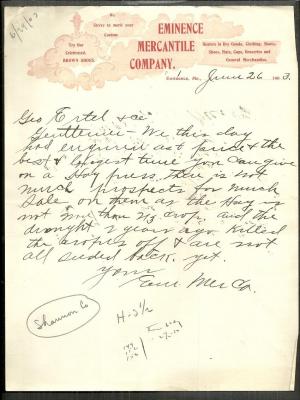 No.
Strive to merit your
Custom
Try Our
Celebrated
BROWN SHOES.
EMINENCE
MERCANTILE
COMPANY.
Dealers in Dry Goods, Clothing, Boots,
Shoes, Hats, Caps, Groceries and
General Merchandise.
Eminence, Mo., June 26 1903.
Geo Ertel & Co
Gentlemen – We this day
had enquiries as to price & the
best & longest time you can give
on a Hay press. there is not
much prospects for much
Sale on them as the Hay is
not more than 2/3 crop. and the
drought 2 years ago Killed
the crops off & are not
all seeded back yet.
Yours
Em Mer Co.
Shannon Co
H-2½